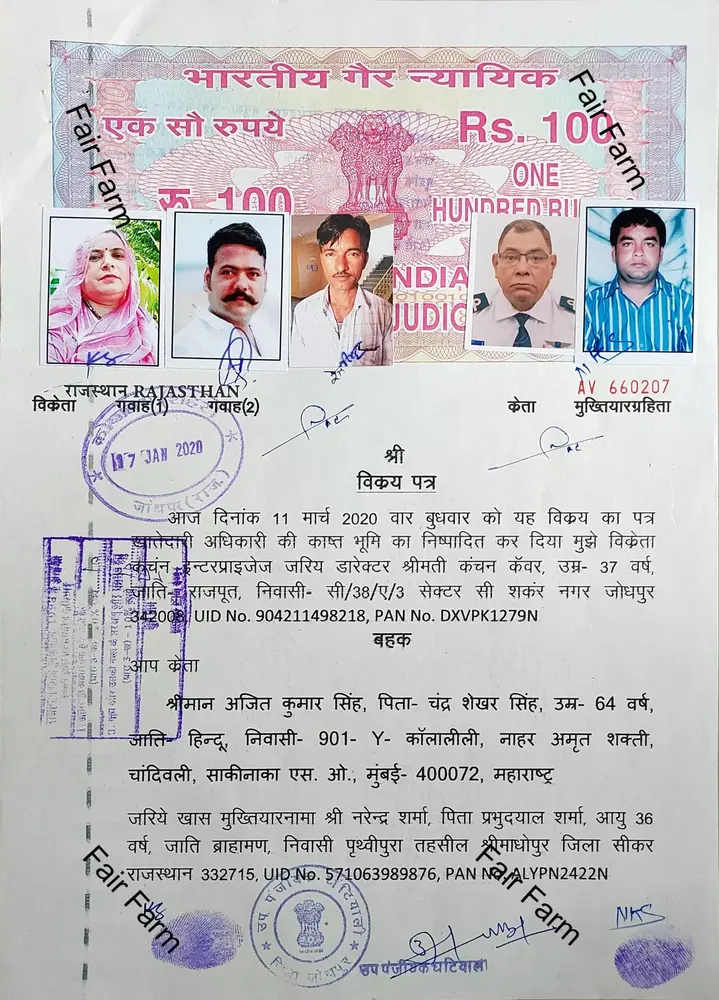 भारतीय गैर न्यायिक
एक सौ रुपये Rs. 100
रु. 100 ONE
HUNDRED RU
Fair Farm
Fair Farm
INDIA
JUDIC
राजस्थान RAJASTHAN
AV 660207
विक्रेता गवाह(1) गवाह(2) केता मुख्तियारग्रहिता
17 JAN 2020
जोधपुर (राज.)
श्री
विक्रय पत्र
आज दिनांक 11 मार्च 2020 वार बुधवार को यह विक्रय का पत्र
खातेदारी अधिकारी की काष्त भूमि का निष्पादित कर दिया मुझे विक्रेता
कंचंन इन्टरप्राइजेज जरिय डारेक्टर श्रीमती कंचन कॅवर, उम्र- 37 वर्ष,
जाति- राजपूत, निवासी- सी/38/ए/3 सेक्टर सी शकंर नगर जोधपुर
342008, UID No. 904211498218, PAN No. DXVPK1279N
बहक
आप केता
श्रीमान अजित कुमार सिंह, पिता- चंद्र शेखर सिंह, उम्र- 64 वर्ष,
जाति- हिन्दू, निवासी- 901- Y- कॉलालीली, नाहर अमृत शक्ती,
चांदिवली, साकीनाका एस. ओ., मुंबई- 400072, महाराष्ट्र
जरिये खास मुख्तियारनामा श्री नरेन्द्र शर्मा, पिता प्रभुदयाल शर्मा, आयु 36
वर्ष, जाति ब्राहामण, निवासी पृथ्वीपुरा तहसील श्रीमाधोपुर जिला सीकर
राजस्थान 332715, UID No. 571063989876, PAN No. ALYPN2422N
Fair Farm
Fair Farm
उप पंजीयक घटियाली
जोधपुर
NKS
उप पंजीयक घटियाला